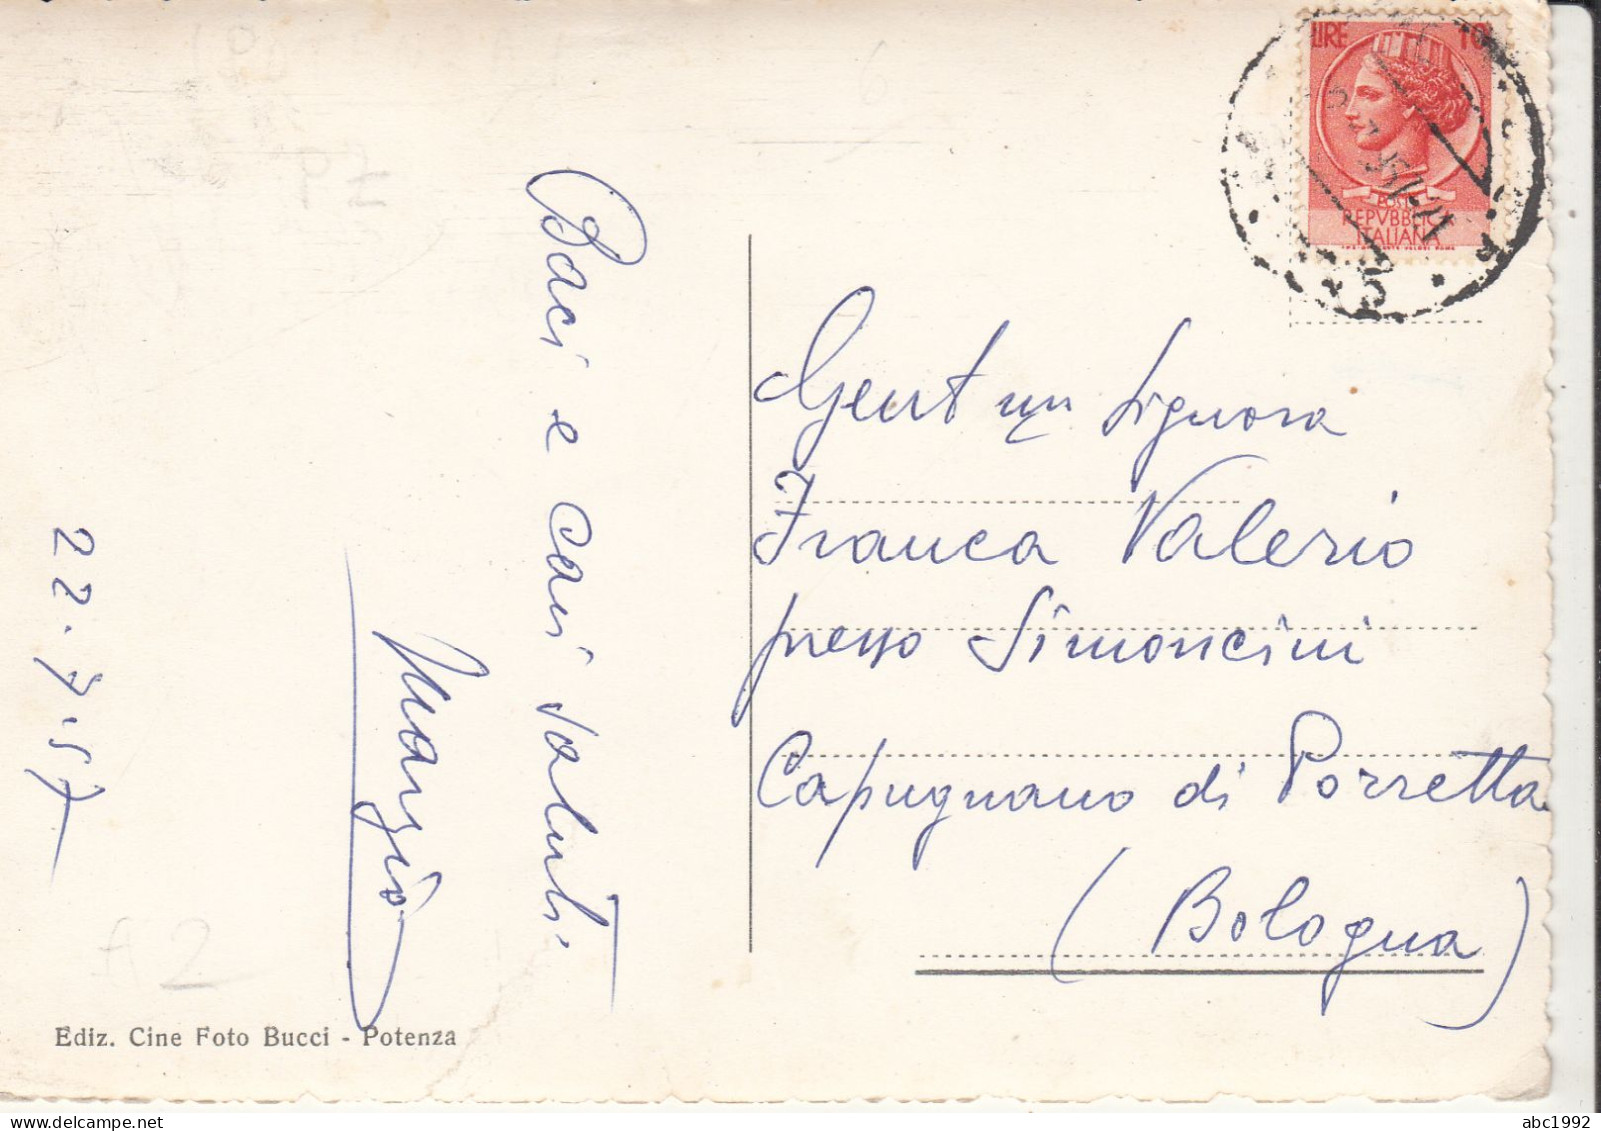 Baci e cari saluti
Marzio
22.7.57
A2
Ediz. Cine Foto Bucci - Potenza
LIRE 10
POSTE
REPVBBLICA
ITALIANA
Gent ma Signora
Franca Valerio
presso Simoncini
Capugnano di Porretta
(Bologna)
abc1992